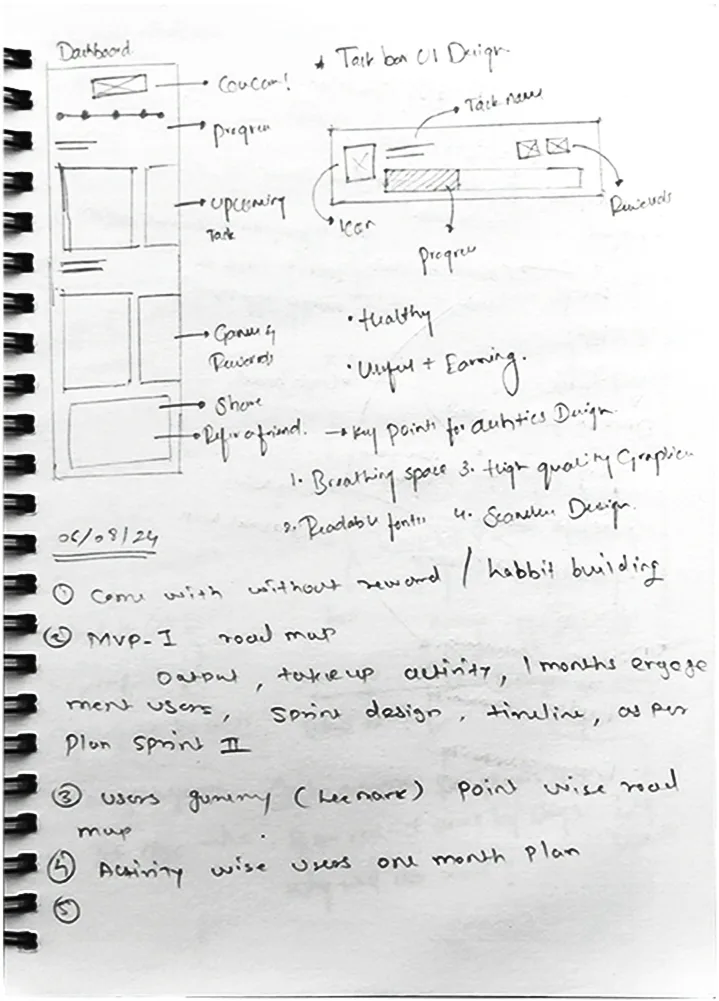 Dashboard
* Task bar UI Design
Progress
Upcoming
Task
Rewards
Share
Refer a friend.
Task name
Icon
Progress
Rewards
• Healthy
• Useful + Earning.
→ Key points for Design
1. Breathing space 3. High quality Graphics
2. Readable fonts 4. Design
06/08/24
① Come with without reward / habbit building
② MVP-I road map
Output, takeup activity, 1 months engage
ment users, Sprint design, timeline, as per
plan Sprint II
③ users point wise road
map
④ Activity wise users one month plan
⑤